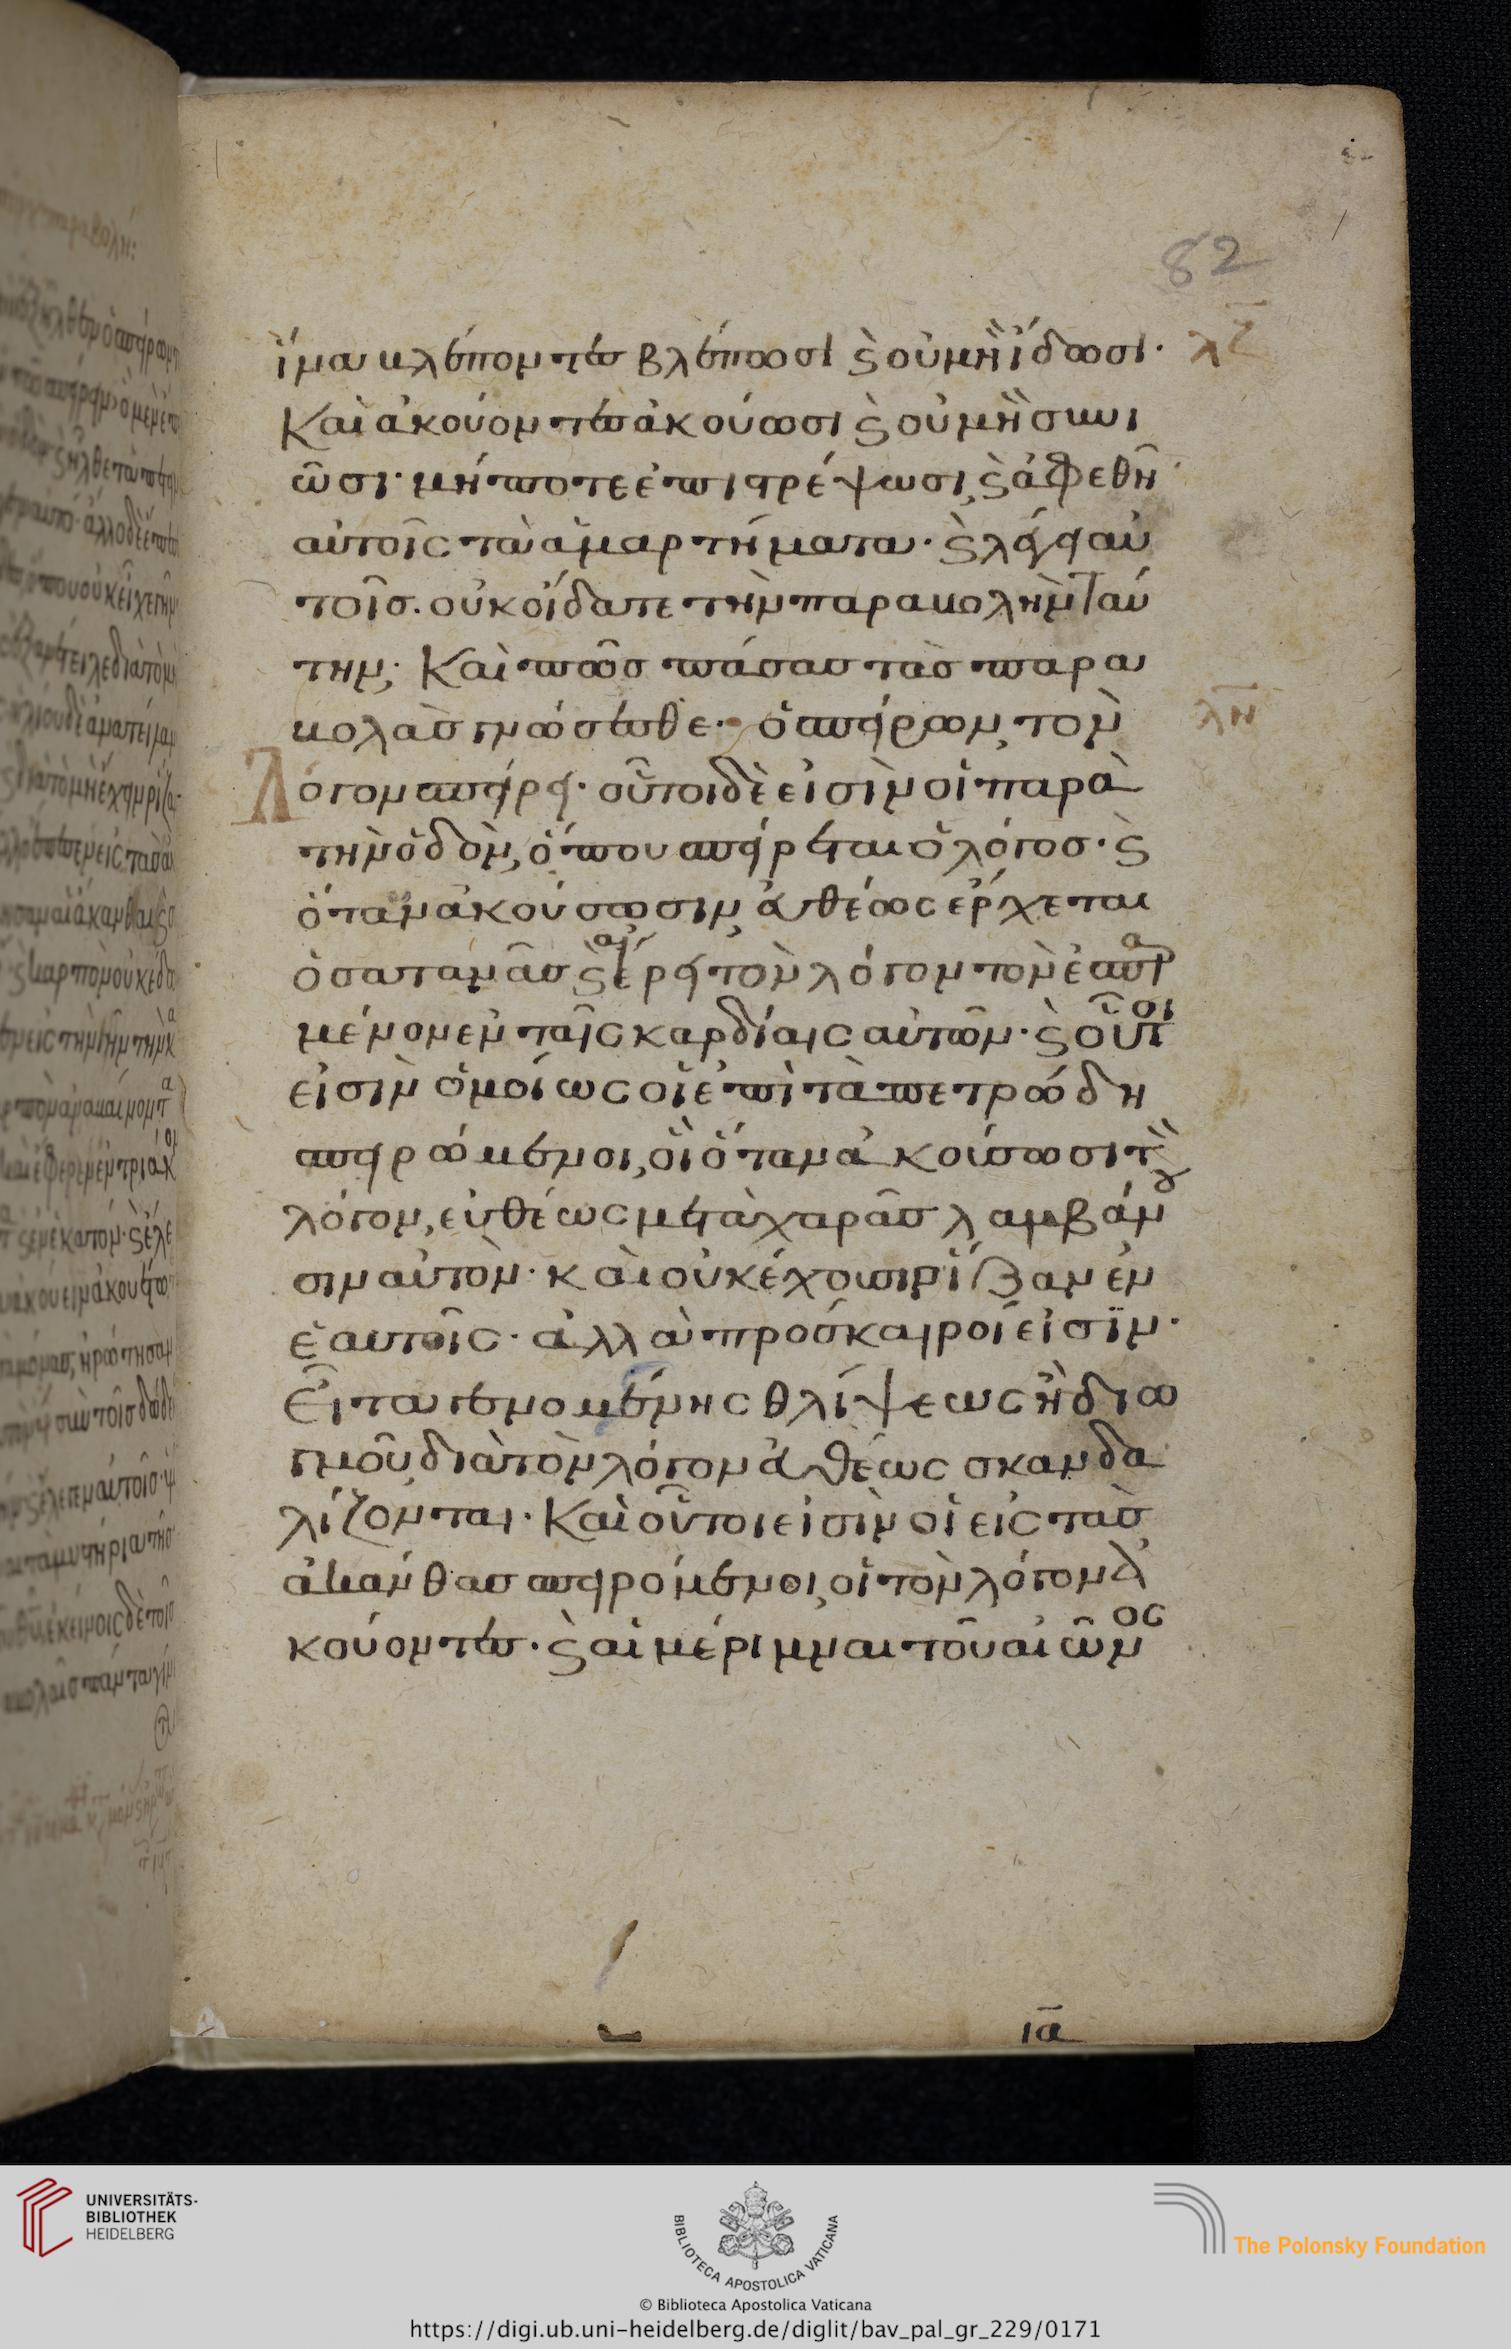 82
ἵνα βλέποντες βλέπωσι ϛ οὐ μὴ ἴδωσι· λζ
Καὶ ἀκούοντες ἀκούωσι ϛ οὐ μὴ συνι
ῶσι· μήποτε ἐπιστρέψωσι, ϛ ἀφεθῆ
αὐτοῖς τὰ ἁμαρτήματα· ϛ λέγει αὐ
τοῖς. οὐκ οἴδατε τὴν παραβολὴν ταύ
την; Καὶ πῶς πάσας τὰς παρα
βολὰς γνώσεσθε· ὁ σπείρων, τὸν λη
Λόγον σπείρει· οὗτοι δὲ εἰσὶν οἱ παρὰ
τὴν ὁδὸν, ὅπου σπείρεται ὁ λόγος· ϛ
ὅταν ἀκούσωσιν, εὐθέως ἔρχεται
ὁ σατανᾶς ϛ αἴρει τὸν λόγον τὸν ἐσπαρ
μένον ἐν ταῖς καρδίαις αὐτῶν· ϛ οὗτοι
εἰσὶν ὁμοίως οἱ ἐπὶ τὰ πετρώδη
σπειρώμενοι, οἳ ὅταν ἀκούσωσι τὸν
λόγον, εὐθέως μετὰ χαρᾶς λαμβάνου
σιν αὐτὸν· καὶ οὐκ έχουσι ρίζαν ἐν
ἑαυτοῖς· ἀλλὰ πρόσκαιροί εἰσϊν·
Εἶτα γενομένης θλίψεως ἢ διω
γμοῦ διὰ τὸν λόγον εὐθέως σκανδα
λίζονται· Καὶ οὗτοι εἰσὶν οἱ εἰς τὰς
ἀκάνθας σπειρόμενοι, οἱ τὸν λόγον ἀ
κούοντες· ϛ αἱ μέριμναι τοῦ αἰῶνος
ια
UNIVERSITÄTS-
BIBLIOTHEK
HEIDELBERG
BIBLIOTECA APOSTOLICA VATICANA
The Polonsky Foundation
© Biblioteca Apostolica Vaticana
https://digi.ub.uni-heidelberg.de/diglit/bav_pal_gr_229/0171